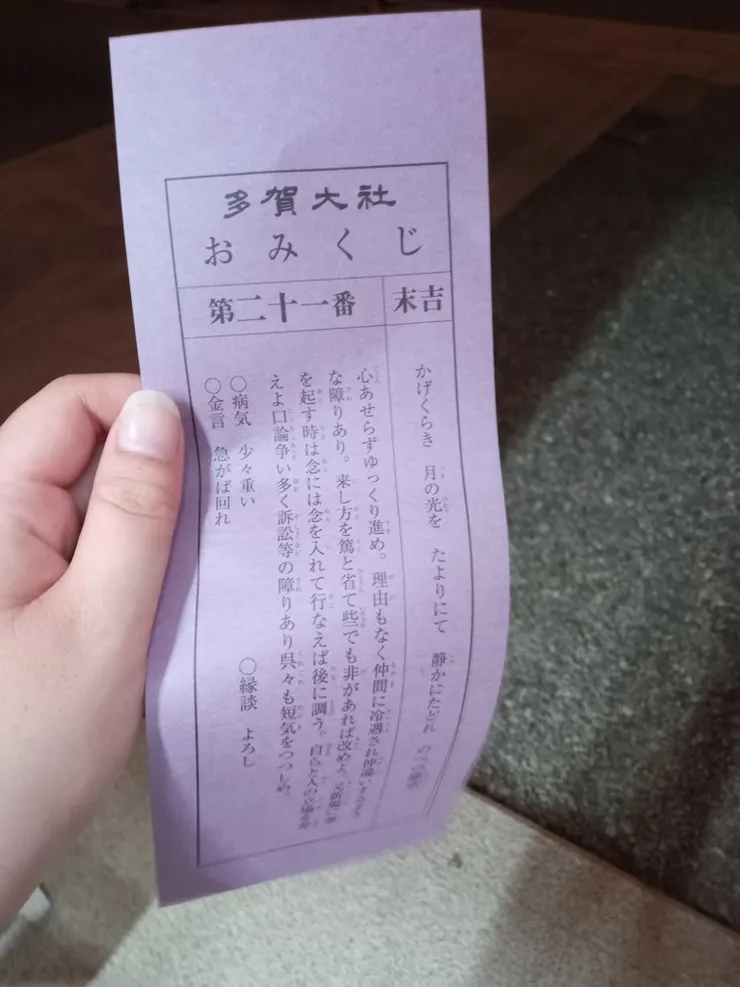 多賀大社
おみくじ
第二十一番
末吉
かげくらき 月の光を たよりにて 静かにたどれ のべの
心あせらずゆっくり進め。理由もなく仲間に冷遇され仲違いするよう
な障りあり。来し方を篤と省て些でも非があれば改めよ。又新規に事
を起す時は念には念を入れて行なえば後に調う。自らと人の立場を考
えよ口論争い多く訴訟等の障りあり呉々も短気をつつしめ。
○病気 少々重い
○縁談 よろし
○金言 急がば回れ